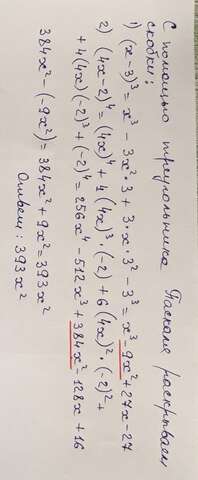 С помощью треугольника Паскаля раскрываем
скобки:
1) (x-3)³ = x³ - 3x²·3 + 3·x·3² - 3³ = x³ - 9x² + 27x - 27
2) (4x-2)⁴ = (4x)⁴ + 4(4x)³·(-2) + 6(4x)²·(-2)² +
+ 4(4x)(-2)³ + (-2)⁴ = 256x⁴ - 512x³ + 384x² - 128x + 16
384x² - (-9x²) = 384x² + 9x² = 393x²
Ответ: 393x²